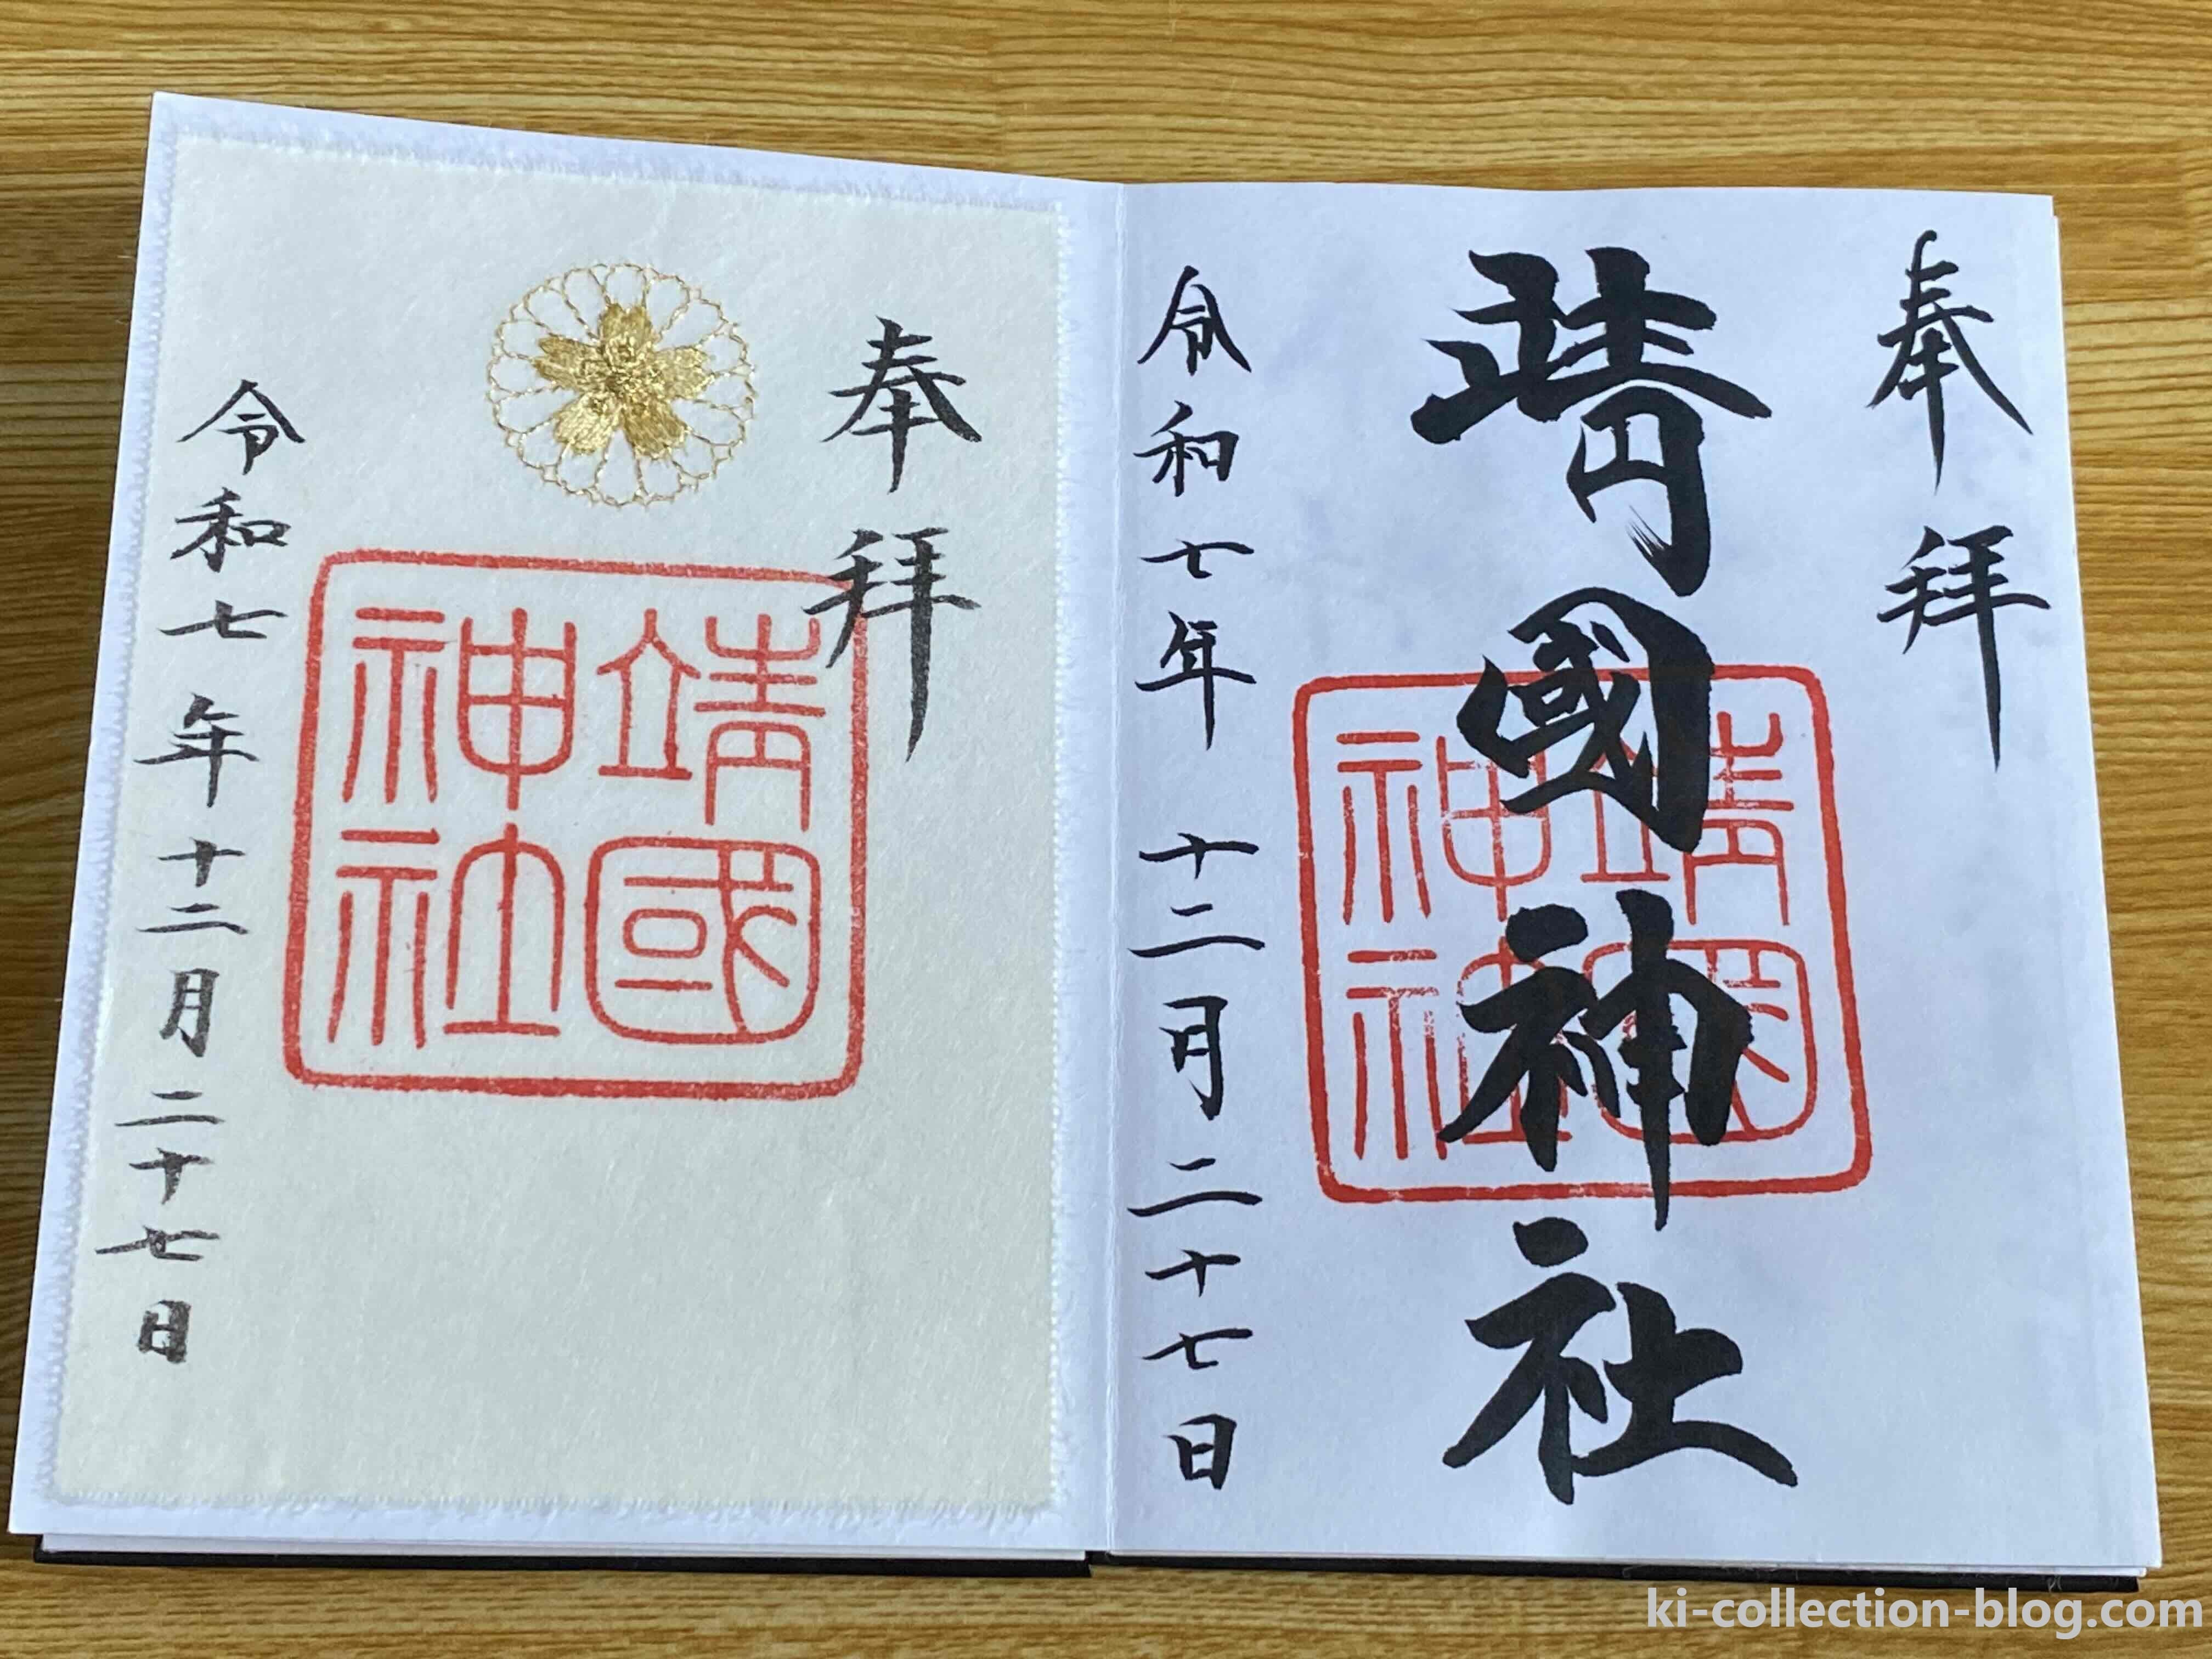 奉拜
靖國神社
靖國
神社
令和七年 十二月二十七日
奉拜
靖國
神社
令和七年十二月二十七日
ki-collection-blog.com